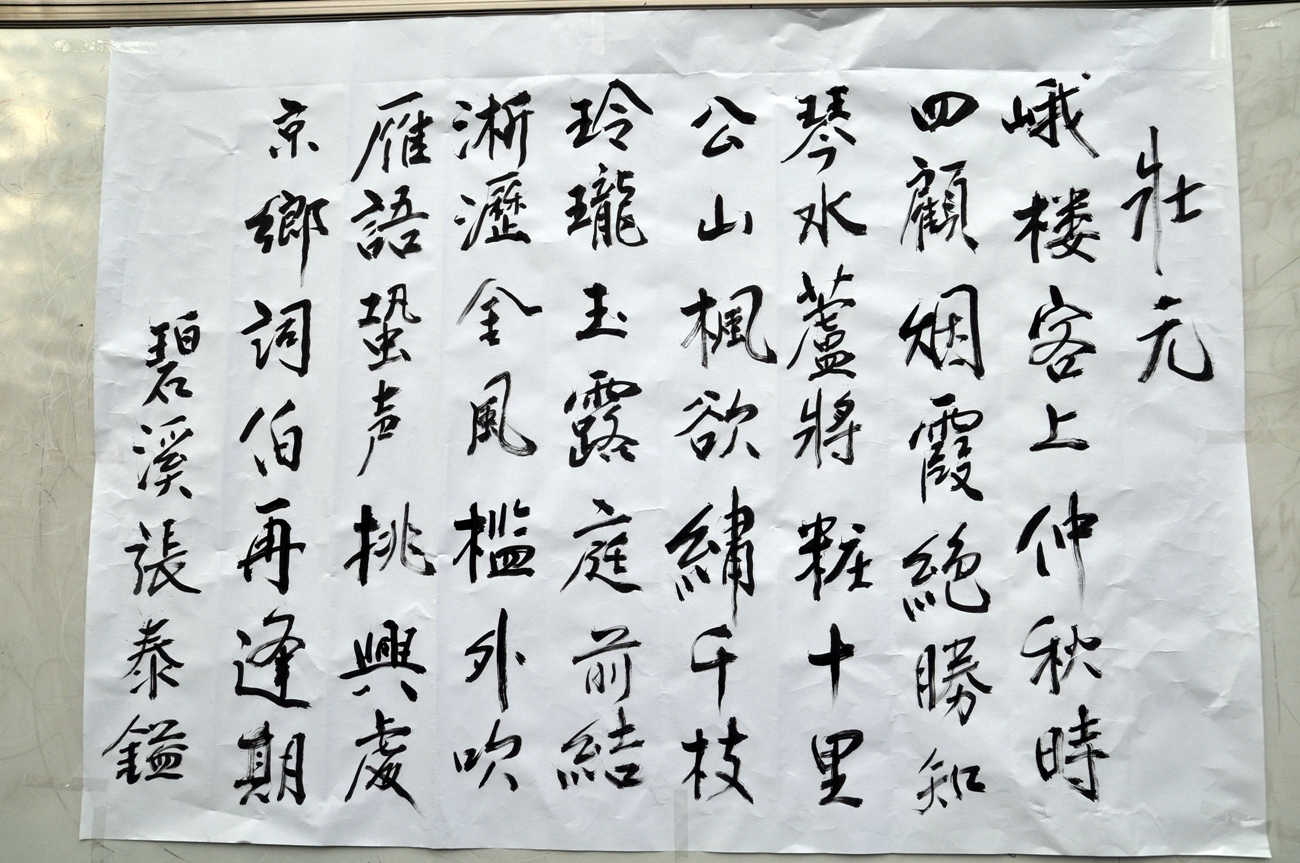 壯元
峨楼客上仲秋時
四顧烟霞絶勝知
琴水蘆將粧十里
公山楓欲繡千枝
玲瓏玉露庭前結
淅瀝金風檻外吹
雁語蛩声挑興處
京鄉詞伯再逢期
碧溪張泰鎰